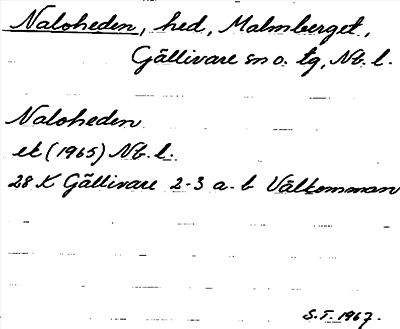 Naloheden, hed, Malmberget,
Gällivare sn o. tg, Nb. l.
Naloheden
ek (1965) Nb. l.
28 K Gällivare 2-3 a-b Välkomman
S.T. 1967.